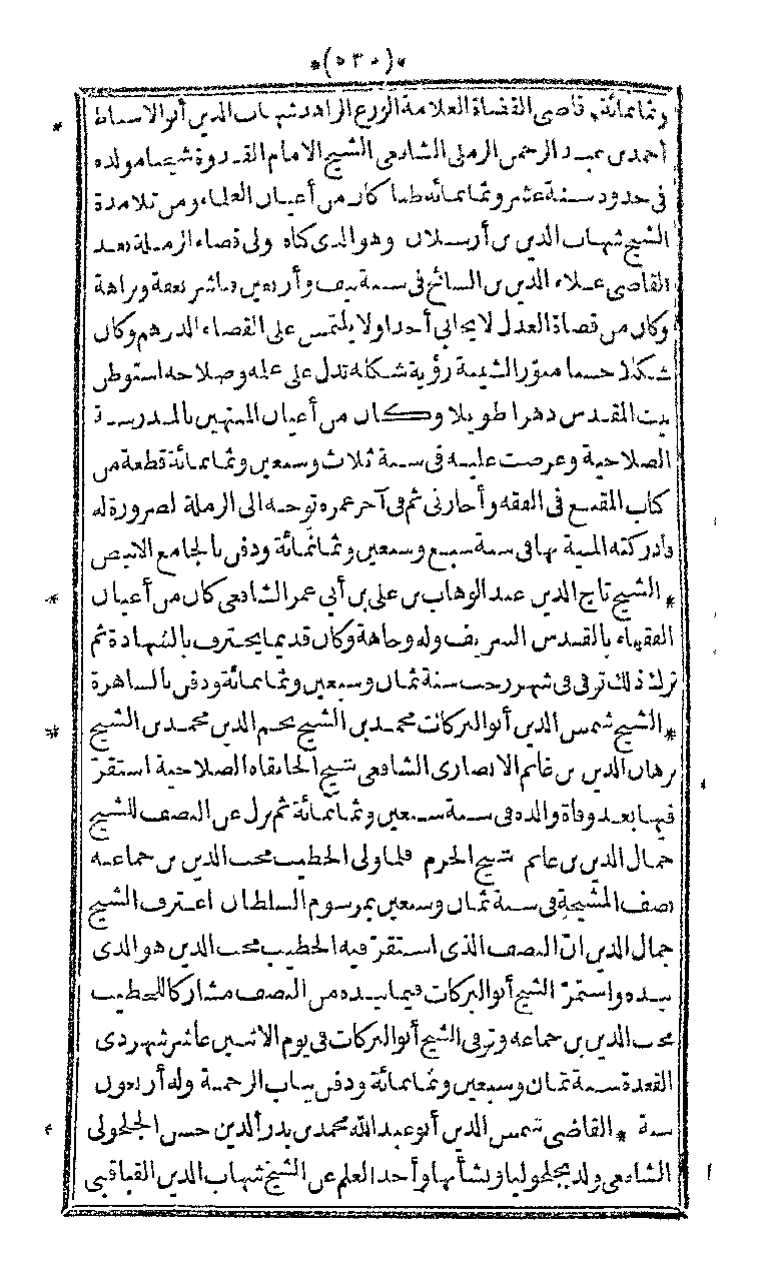 *(٥٣٠)*
وثمانمائة * قاضى القضاة العلامة الورع الزاهد شهاب الدين أبو الاسباط
أحمد بن عبد الرحمن الرملى الشافعى الشيخ الامام القدوة شيخنا مولده
فى حدود سنة عشر وثمانمائة ظنا كان من أعيان العلماء ومن تلامذة
الشيخ شهاب الدين بن أرسلان وهو الذى كناه ولى قضاء الرملة بعد
القاضى علاء الدين بن السائح فى سنة نيف وأربعين وباشر بعفة ونزاهة
وكان من قضاة العدل لا يحابى أحدا ولا يلتمس على القضاء الدرهم وكان
شكلا حسنا منوّر الشيبة رؤية شكله تدل على علمه وصلاحه استوطن
بيت المقدس دهرا طويلا وكان من أعيان المنتهين بالمدرسة
الصلاحية وعرضت عليه فى سنة ثلاث وسبعين وثمانمائة قطعة من
كتاب المقنع فى الفقه وأجازنى ثم فى آخر عمره توجه الى الرملة لضرورة له
فادركته المنية بها فى سنة سبع وسبعين وثمانمائة ودفن بالجامع الابيض
* الشيخ تاج الدين عبد الوهاب بن على بن أبى عمر الشافعى كان من أعيان
الفقهاء بالقدس الشريف وله وجاهة وكان قديما يحترف بالشهادة ثم
ترك ذلك توفى فى شهر رجب سنة ثمان وسبعين وثمانمائة ودفن بالساهرة
* الشيخ شمس الدين أبو البركات محمد بن الشيخ نجم الدين محمد بن الشيخ
برهان الدين بن غانم الانصارى الشافعى شيخ الخانقاه الصلاحية استقرّ
فيها بعد وفاة والده فى سنة سبعين وثمانمائة ثم نزل عن النصف للشيخ
جمال الدين بن غانم شيخ الحرم فلما ولى الخطيب محب الدين بن جماعه
نصف المشيخة فى سنة ثمان وسبعين بمرسوم السلطان اعترف الشيخ
جمال الدين انّ النصف الذى استقرّ فيه الخطيب محب الدين هو الذى
بيده واستمرّ الشيخ أبو البركات فيما بيده من النصف مشاركا للخطيب
محب الدين بن جماعه وتوفى الشيخ أبو البركات فى يوم الاثنين عاشر شهر ذى
القعدة سنة ثمان وسبعين وثمانمائة ودفن بباب الرحمة وله أربعون
سنة * القاضى شمس الدين أبو عبد الله محمد بن بدر الدين حسن الجلجولى
الشافعى ولد بجلجوليا ونشأ بها وأخذ العلم عن الشيخ شهاب الدين القباقبى